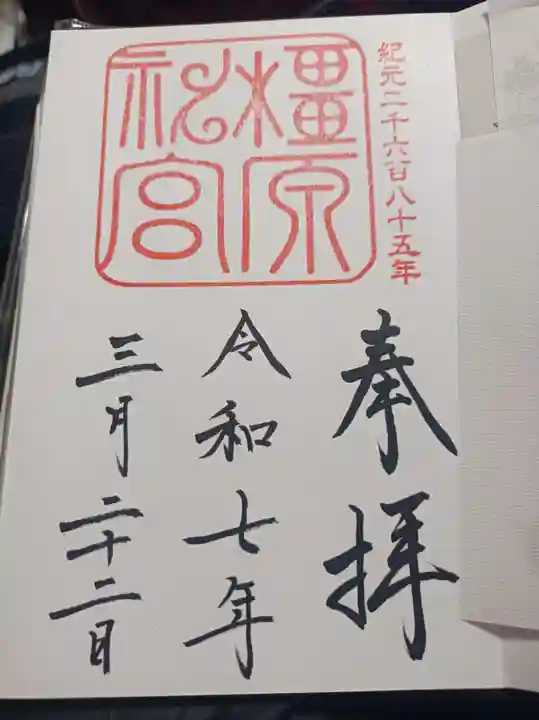 紀元二千六百八十五年
橿原神宮
奉拝
令和七年
三月二十二日